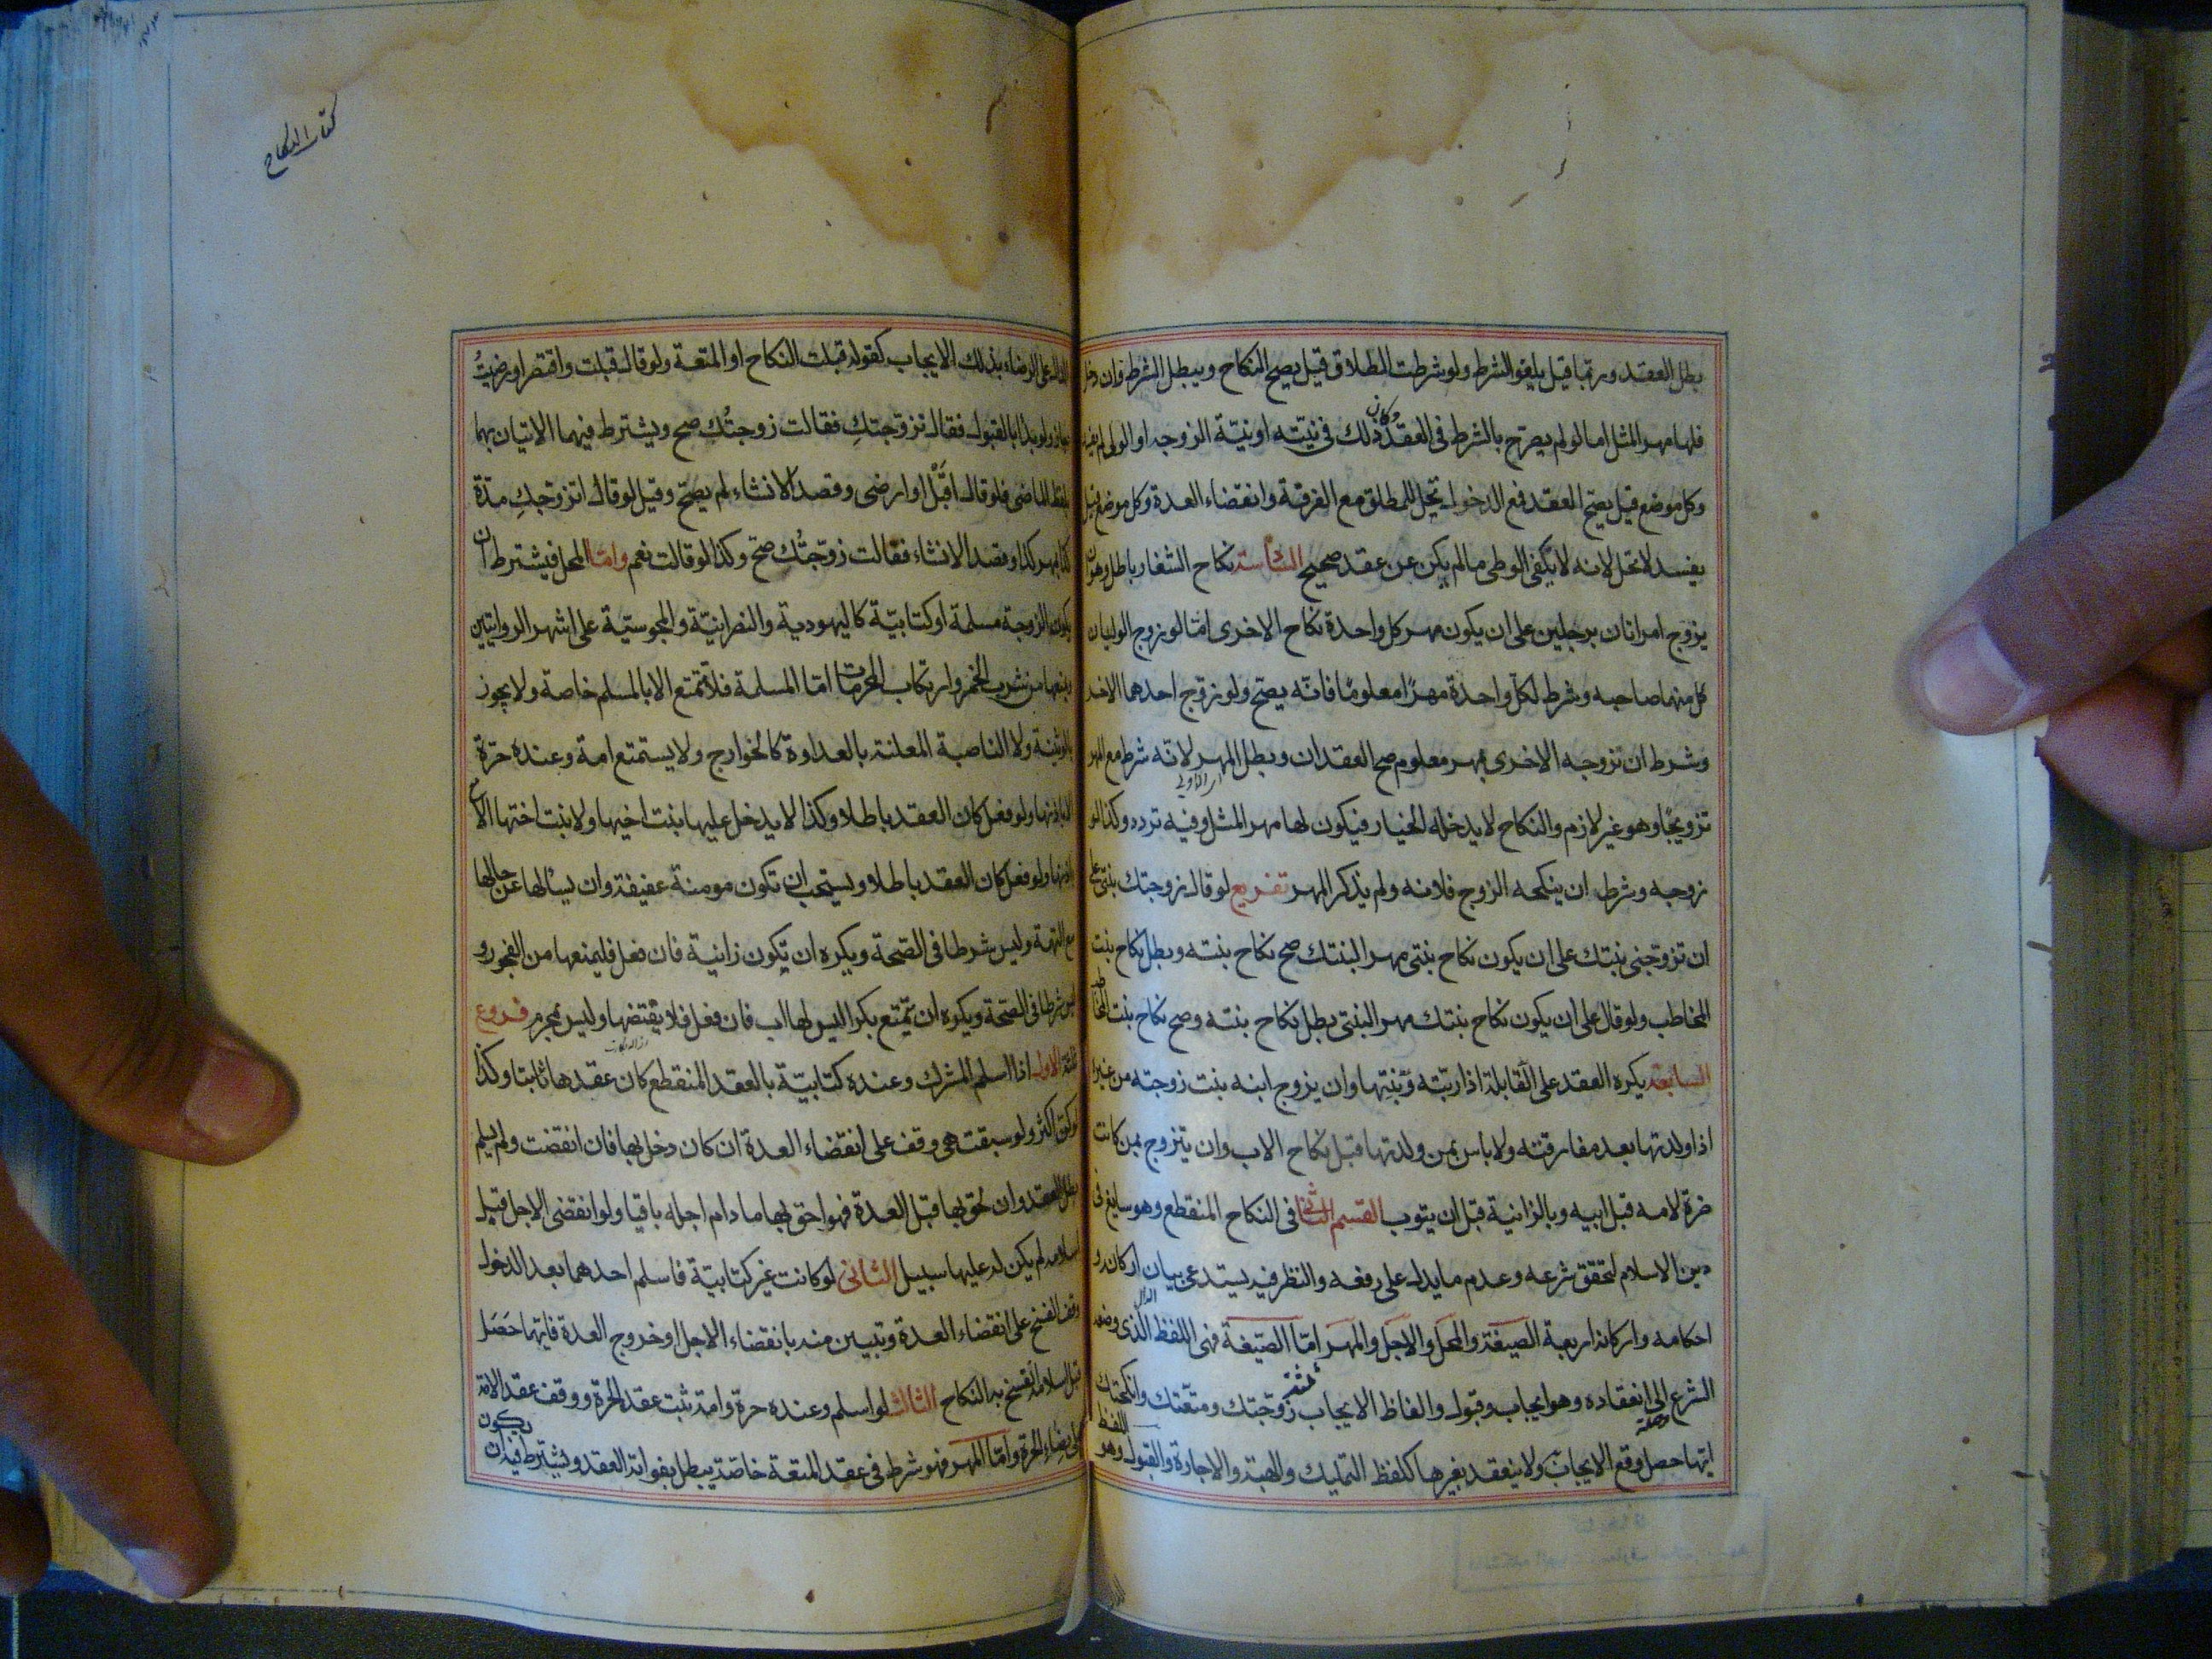 بطل العقد وربما قيل يلغو الشرط ولو شرطت الطلاق قيل يصح النكاح ويبطل الشرط فان دخل
فلها مهر المثل اما لو لم يصرح بالشرط فى العقد وكان ذلك فى نيته او نية الزوجه او الولى لم يفسد
وكل موضع قيل يصح العقد فمع الدخول تحل للمطلق مع الفرقة وانقضاء العدة وكل موضع قيل
يفسد لا تحل لانه لا يكفى الوطى ما لم يكن عن عقد صحيح السادسة نكاح الشغار باطل وهو ان
يزوج امراتان برجلين على ان يكون مهر كل واحدة نكاح الاخرى امّا لو زوج الوليان
كل منهما صاحبه وشرط لكل واحدة مهرًا معلومًا فانّه يصح ولو زوج احدهما الاخر
وشرط ان تزوجه الاخرى بمهر معلوم صح العقدان وبطل المهر لانّه شرط مع المهر
تزويجًا وهو غير لازم والنكاح لا يدخله الخيار فيكون لها مهر المثل وفيه تردد وكذا لو
زوجه وشرط ان ينكحه الزوج فلانه ولم يذكر المهر تفريع لو قال زوجتك بنتى على
ان تزوجنى بنتك على ان يكون نكاح بنتى مهرا لبنتك صح نكاح بنته وبطل نكاح بنت
المخاطب ولو قال على ان يكون نكاح بنتك مهرا لبنتى بطل نكاح بنته وصح نكاح بنت المخاطب
السابعة يكره العقد على القابلة اذا ربته وبنتها وان يزوج ابنه بنت زوجته من غيره
اذا ولدتها بعد مفارقته ولا باس بمن ولدتها قبل نكاح الاب وان يتزوج بمن كانت
ضرة لامه قبل ابيه وبالزانية قبل ان يتوب القسم الثانى فى النكاح المنقطع وهو سايغ فى
دين الاسلام لتحقق شرعه وعدم ما يدل على رفعه والنظر فيه يستدعى بيان اركانه و
احكامه واركانه اربعة الصيغة والمحل والاجل والمهر امّا الصيغة فهى اللفظ الذى وضعه
الشرع الى انعقاده وهو ايجاب وقبول والفاظ الايجاب ثلثة زوجتك ومتعتك وانكحتك
ايها حصل وقع الايجاب به ولا ينعقد بغيرها كلفظ التمليك والهبة والاجارة والقبول وهو اللفظ
كتاب النكاح
الدال على الرضاء بذلك الايجاب كقوله قبلت النكاح او المتعة ولو قال قبلت واقتصر او رضيت
جاز ولو بدا بالقبول فقال تزوجتكِ فقالت زوجتُك صح ويشترط فيهما الاتيان بهما
بلفظ الماضى فلو قال اقبل او ارضى وقصد الانشاء لم يصح وقيل لو قال اتزوجكِ مدّة
كذا بمهر كذا وقصد الانشاء فقالت زوجتُك صح وكذا لو قالت نعم وامّا المحل فيشترط ان
يكون الزوجة مسلمة او كتابيّة كاليهودية والنصرانيّة والمجوسيّة على اشهر الروايتين
ويمنعها من شرب الخمر وارتكاب المحرمات امّا المسلمة فلا تتمتع الا بالمسلم خاصة ولا يجوز
بالوثنية ولا الناصبة المعلنة بالعداوة كالخوارج ولا يستمتع امة وعنده حرّة
الا باذنها ولو فعل كان العقد باطلا وكذا لا يدخل عليها بنت اخيها ولا بنت اختها الا مع
اذنها ولو فعل كان العقد باطلا ويستحب ان تكون مومنة عفيفة وان يسالها عن حالها
مع التهمة وليس شرطا فى الصّحة ويكره ان تكون زانية فان فعل فليمنعها من الفجور و
ليس شرطا فى الصّحة ويكره ان يتمتع بكرا ليس لها اب فان فعل فلا يفتضها وليس بمحرم فروع
ثلثة الاول اذا اسلم المشرك وعنده كتابيّة بالعقد المنقطع كان عقدها ثابتا وكذا
لو كن اكثر ولو سبقت هى وقف على انقضاء العدة ان كان دخل بها فان انقضت ولم يسلم
بطل العقد وان لحق بها قبل العدة فهو احق بها ما دام اجله باقيا ولو انقضى الاجل قبل
اسلامه لم يكن له عليها سبيل الثانى لو كانت غير كتابيّة فاسلم احدهما بعد الدخول
وقف الفسخ على انقضاء العدة وتبيين منه بانقضاء الاجل او خروج العدة فايهما حصل
قبل اسلامه انفسخ به النكاح الثالث لو اسلم وعنده حرة وامة ثبت عقد الحرة ووقف عقد الامة
على رضاء الحرة وامّا المهر فهو شرط فى عقد المتعة خاصّة يبطل بفواته العقد ويشترط فيه ان يكون